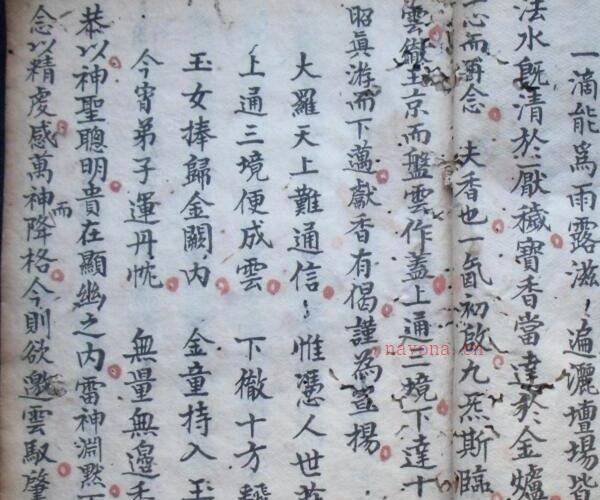 一滴能爲雨露滋〻遍灑壇場皆
法水旣清於厭穢寳香當達於金爐
一心而爇念 夫香也一氤初啟九炁斯臨
雲徹玉京而盤雲作蓋上通三境下達十
昭眞游而下邁獻香有偈謹為宣揚
大羅天上難通信〻惟憑人世
上通三境便成雲 下徹十方
玉女捧歸金闕內 金童持入玉
今宵弟子運丹忱 無量無邊
恭以神聖聰明貴在顯幽之內雷神淵默
念以精虔感萬神而降格今則欲邀雲馭肇
nayona.cn